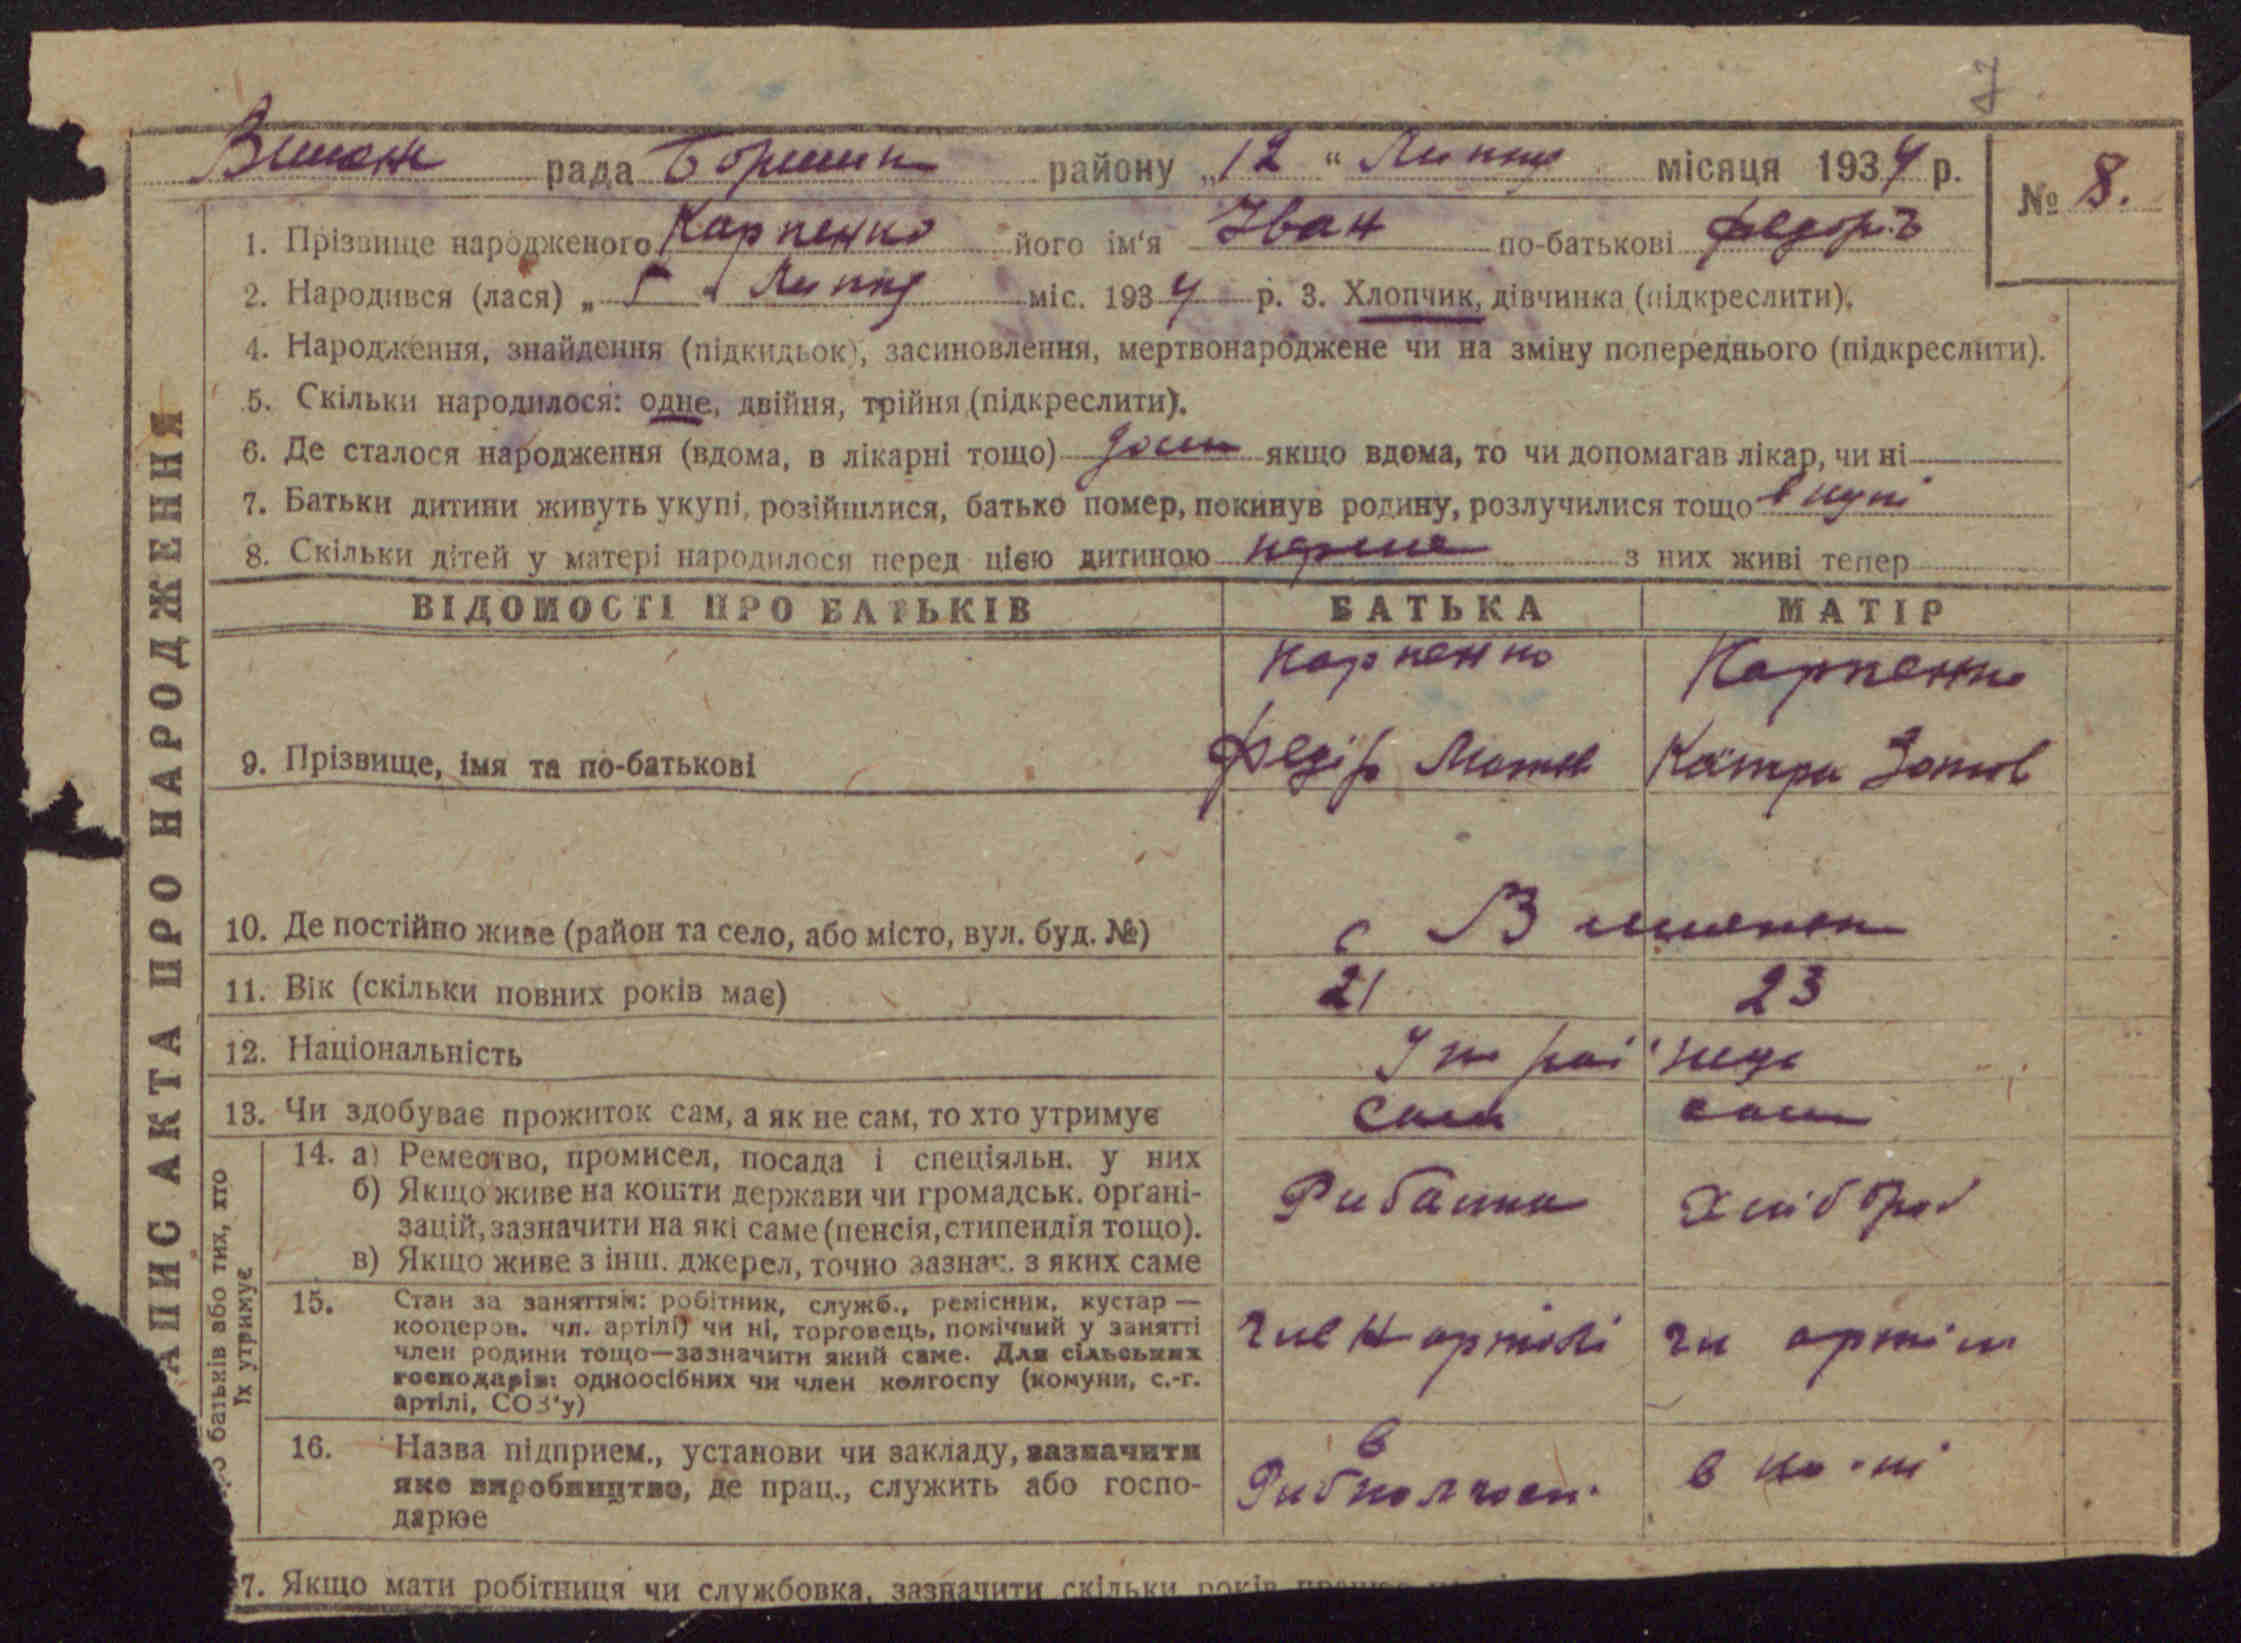 рада району „12“ Липця місяця 1934 р.
№ 8.
1. Прізвище народженого Карпенко його ім'я Іван по-батькові Федорів
2. Народився (лася) „ “ Липця міс. 1934 р. 3. Хлопчик, дівчинка (підкреслити).
4. Народження, знайдення (підкидьок), засиновлення, мертвонароджене чи на зміну попереднього (підкреслити).
5. Скільки народилося: одне, двійня, трійня (підкреслити).
6. Де сталося народження (вдома, в лікарні тощо) дома якщо вдома, то чи допомагав лікар, чи ні
7. Батьки дитини живуть укупі, розійшлися, батько помер, покинув родину, розлучилися тощо вкупі
8. Скільки дітей у матері народилося перед цією дитиною перше з них живі тепер
ЗАПИС АКТА ПРО НАРОДЖЕННЯ
ВІДОМОСТІ ПРО БАТЬКІВ БАТЬКА МАТІР
Карпенко Карпенко
9. Прізвище, імя та по-батькові Федір Матв Катря Зотов
10. Де постійно живе (район та село, або місто, вул. буд. №) с
11. Вік (скільки повних років має) 21 23
12. Національність Украї'нець
13. Чи здобуває прожиток сам, а як не сам, то хто утримує сам сам
батьків або тих, хто
їх утримує
14. а) Ремество, промисел, посада і спеціяльн. у них
б) Якщо живе на кошти держави чи громадськ. орґані-
зацій, зазначити на які саме (пенсія, стипендія тощо).
в) Якщо живе з інш. джерел, точно зазнач. з яких саме
Рибалка Хлібороб
15. Стан за заняттям: робітник, служб., ремісник, кустар —
кооперов. чл. артілі) чи ні, торговець, помічний у занятті
член родини тощо—зазначити який саме. Для сільських
господарів: одноосібних чи член колгоспу (комуни, с.-г.
артілі, СОЗ'у)
член артілі чл артіли
16. Назва підприєм., установи чи закладу, зазначити
яке виробництво, де прац., служить або госпо-
дарює
в
Рибколгосп. в
17. Якщо мати робітниця чи службовка, зазначити скільки років